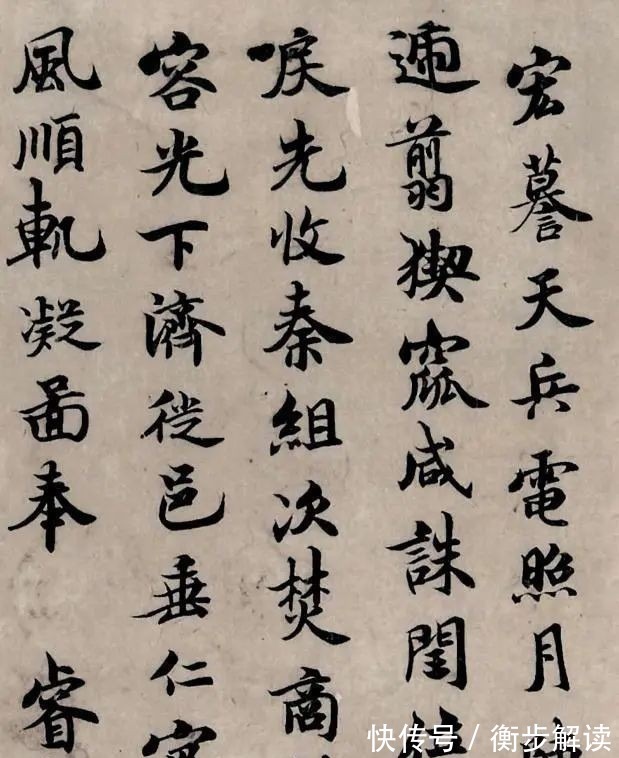 宏謩天兵電照月
翦猰窳咸誅閏
唳先收秦組次焚商
容光下濟徙邑垂仁
風順軌凝圖奉 睿
快传号 / 衡步解读